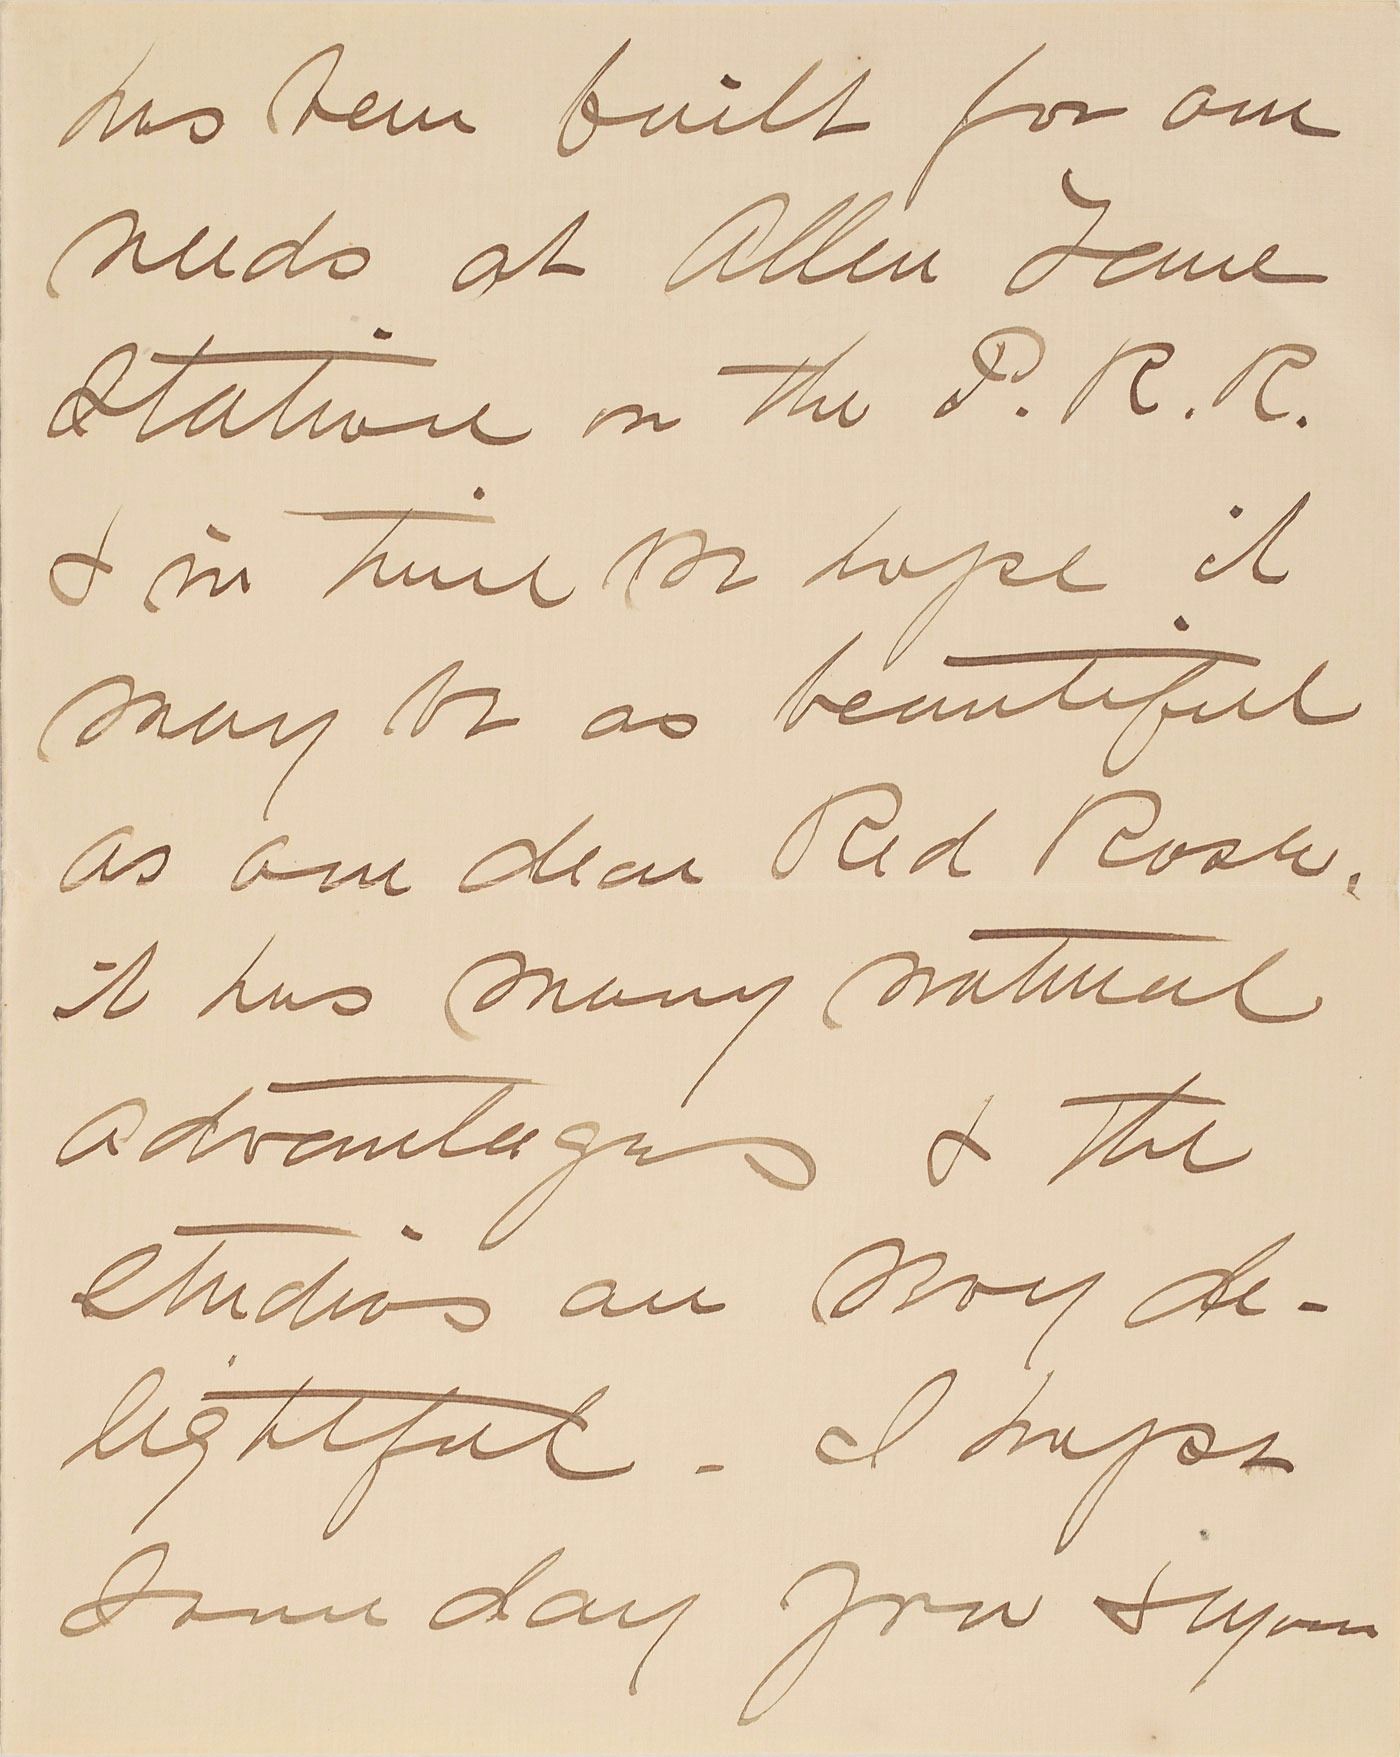 has been built for our
needs at Allen Lane
Station on the P. R. R.
& in time we hope it
may be as beautiful
as our dear Red Rose.
it has many natural
advantages & the
studios are very de-
lightful - I hope
some day you & your